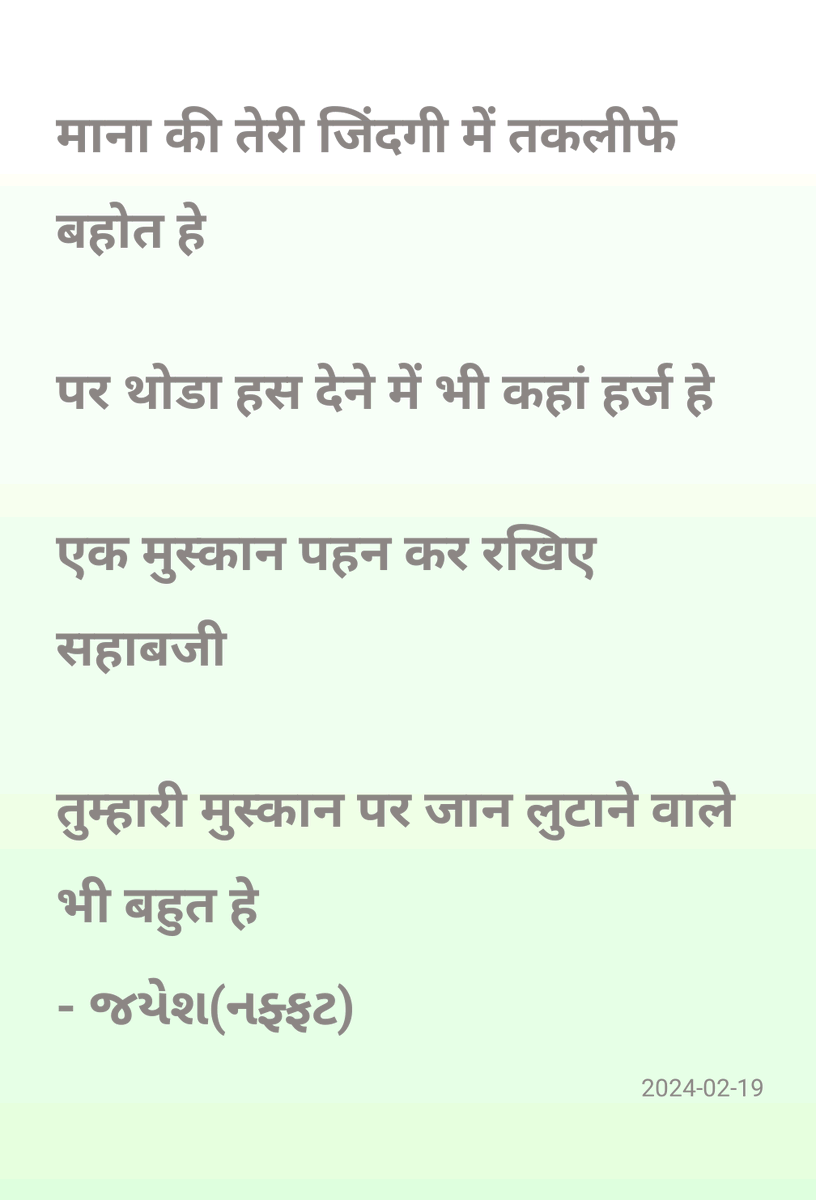 माना की तेरी जिंदगी में तकलीफे
बहोत हे
पर थोडा हस देने में भी कहां हर्ज हे
एक मुस्कान पहन कर रखिए
सहाबजी
तुम्हारी मुस्कान पर जान लुटाने वाले
भी बहुत हे
- જયેશ(નફ્ફટ)
2024-02-19